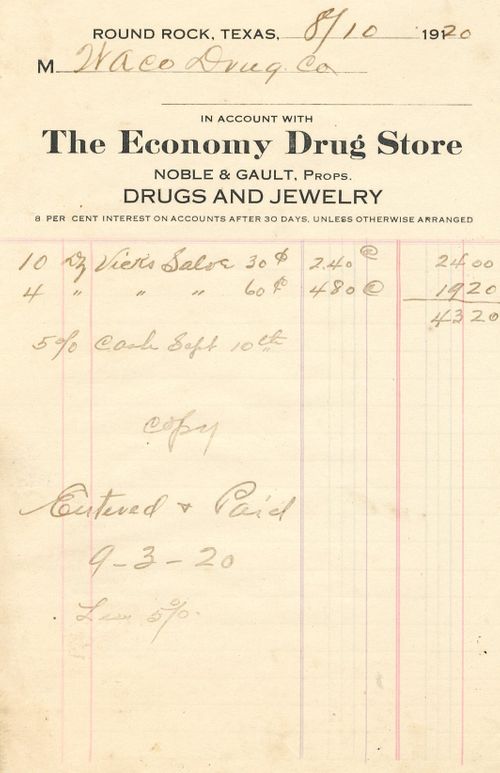 ROUND ROCK, TEXAS, 8/10 1920
M Waco Drug Co
IN ACCOUNT WITH
The Economy Drug Store
NOBLE & GAULT, PROPS.
DRUGS AND JEWELRY
8 PER CENT INTEREST ON ACCOUNTS AFTER 30 DAYS, UNLESS OTHERWISE ARRANGED
10 Dz Vicks Salve 30¢ 2.40 @ 24 00
4 " " " 60¢ 480 @ 19 20
43 20
5% Cash Sept 10th
copy
Entered & Paid
9-3-20
Less 5%